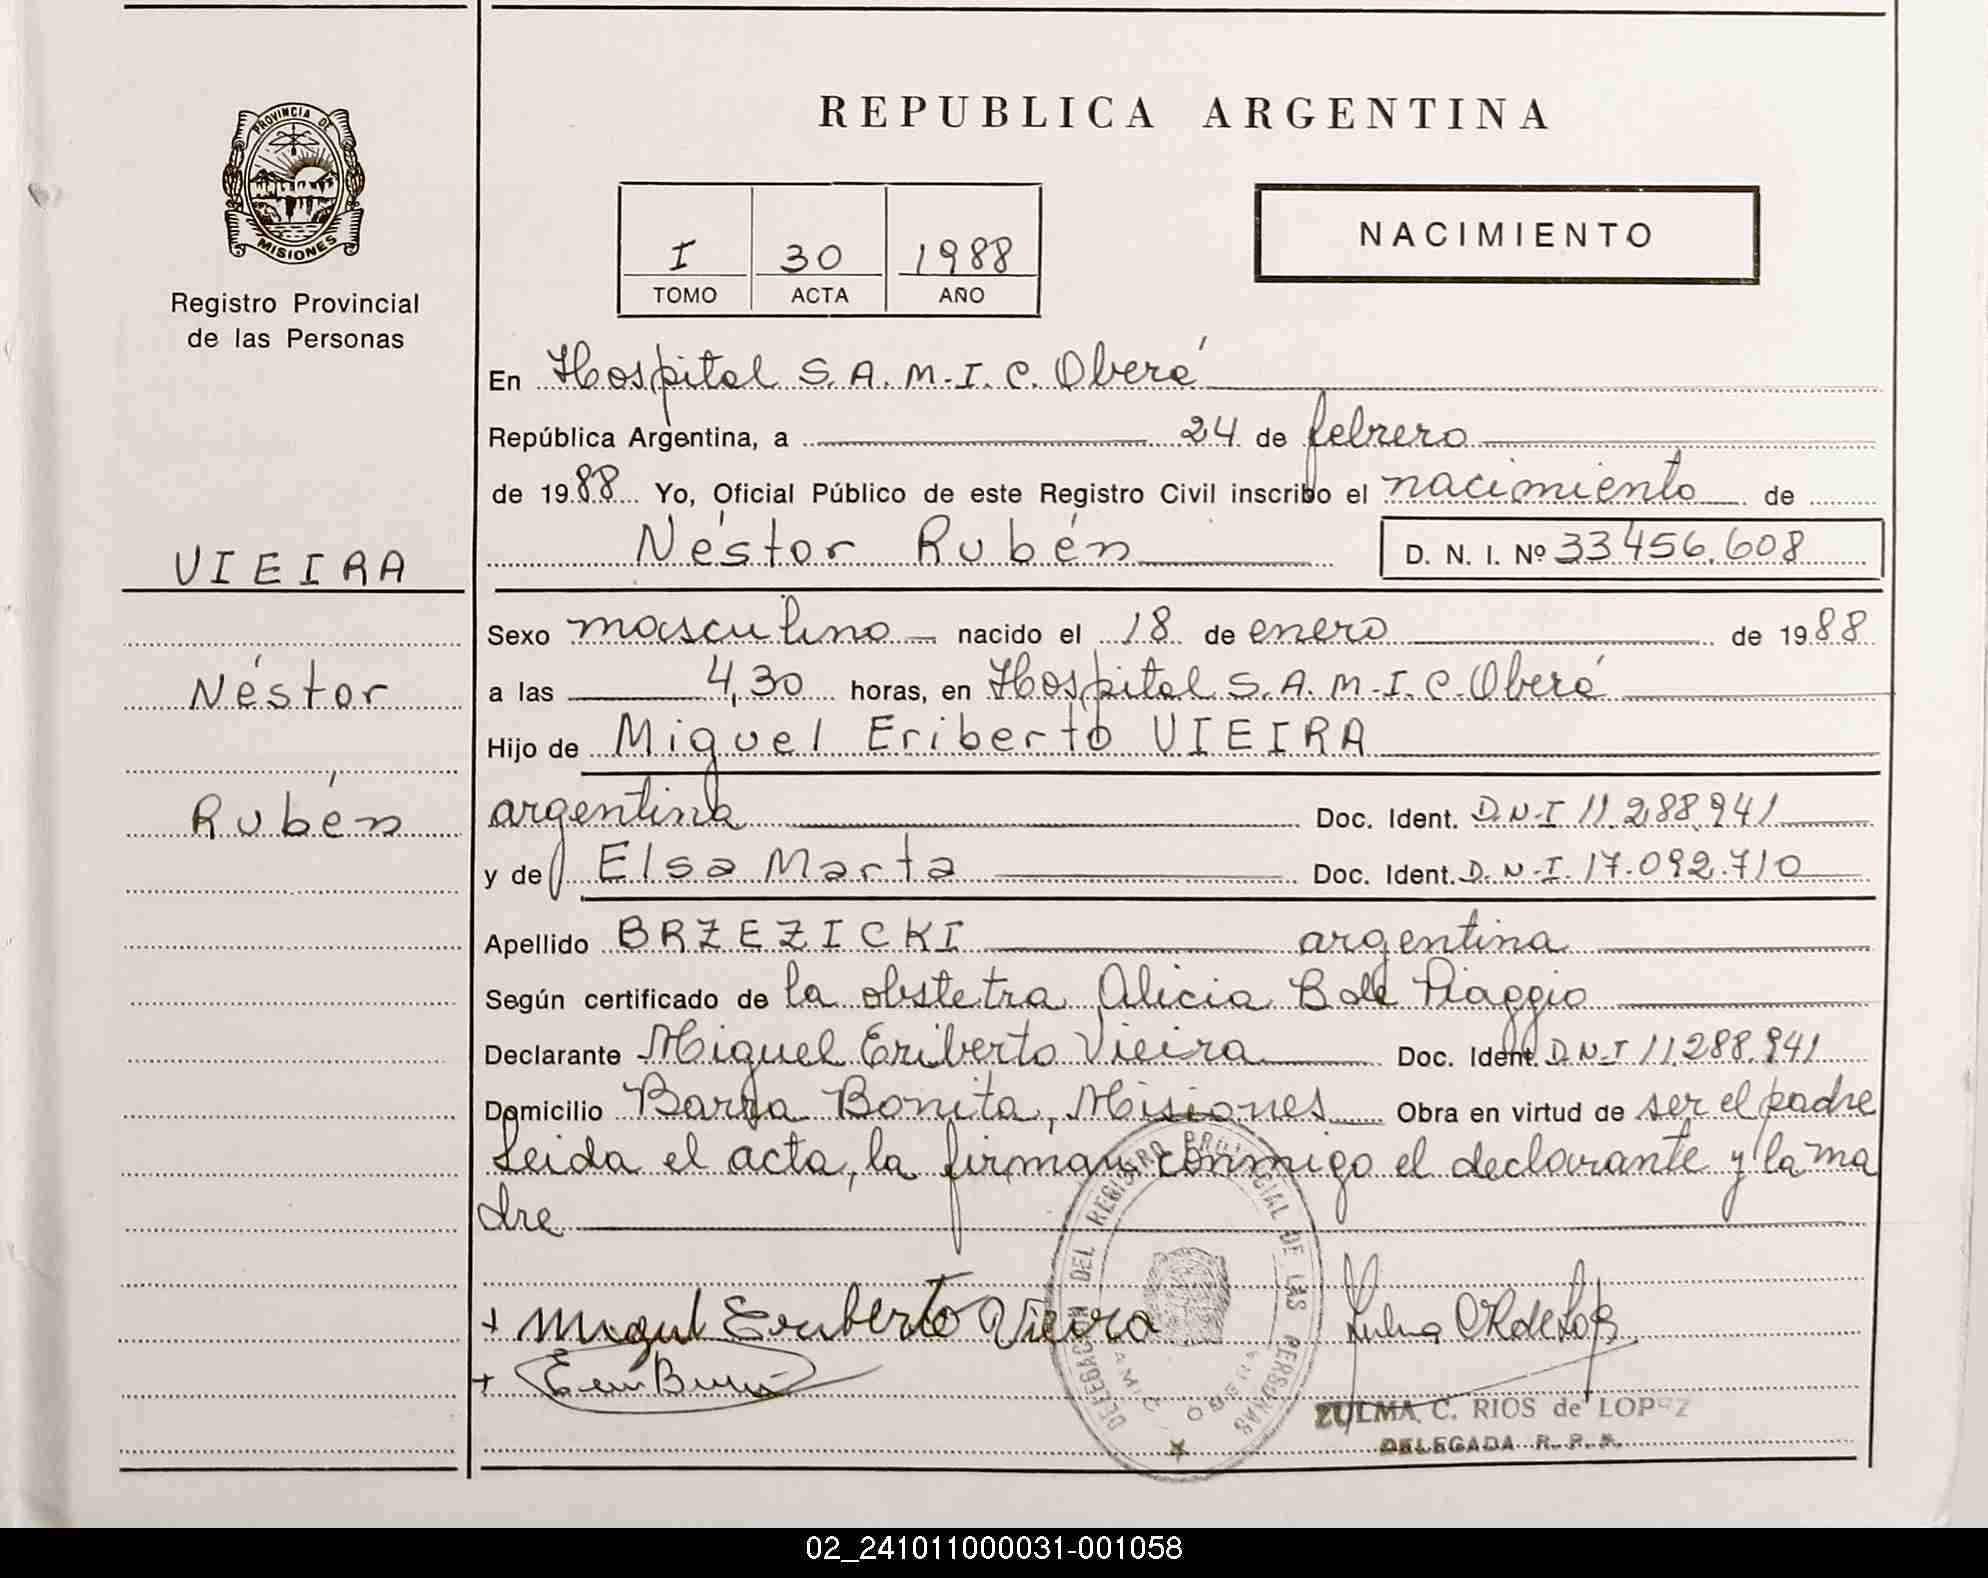 PROVINCIA DE
MISIONES
Registro Provincial
de las Personas
VIEIRA
Néstor
Rubén
REPUBLICA ARGENTINA
I 30 1988
TOMO ACTA AÑO
NACIMIENTO
En Hospital S.A.M.I.C. Oberá
República Argentina, a 24 de febrero
de 1988 Yo, Oficial Público de este Registro Civil inscribo el nacimiento de
Néstor Rubén D. N. I. Nº 33456.608
Sexo masculino nacido el 18 de enero de 1988
a las 4,30 horas, en Hospital S.A.M.I.C. Oberá
Hijo de Miguel Eriberto VIEIRA
argentina Doc. Ident. D.N.I 11.288.941
y de Elsa Marta Doc. Ident. D.N.I. 17.092.710
Apellido BRZEZICKI argentina
Según certificado de la obstetra Alicia B de Piaggio
Declarante Miguel Eriberto Vieira Doc. Ident. D.N.I 11.288.941
Domicilio Barra Bonita, Misiones Obra en virtud de ser el padre
Leida el acta, la firman conmigo el declarante y la ma
dre
DELEGACION DEL REGISTRO PROVINCIAL DE LAS PERSONAS
OBERA
+ Miguel Eriberto Vieira
+
ZULMA C. RIOS de LOPEZ
DELEGADA R. P. P.
02_241011000031-001058